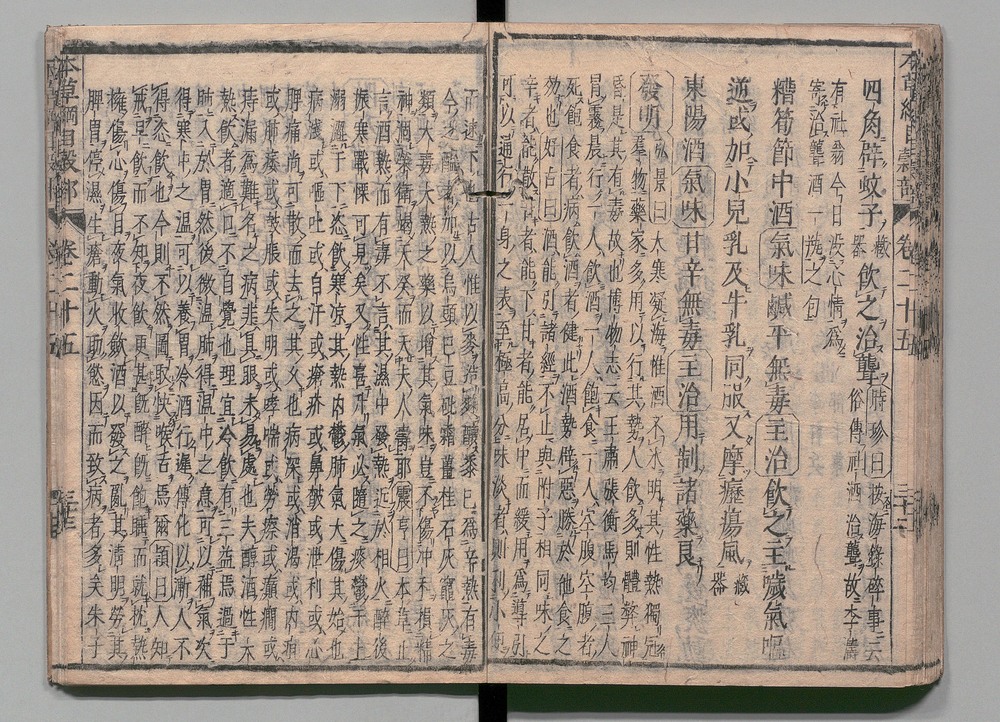 本草綱目穀部 卷二十五 三十二
四角辟蚊子藏器飲之治聾時珍曰按海錄碎事云
俗傳社酒治聾故李濤
有社翁今日沒心情為
寄治聾酒一瓶之句
糟筍節中酒氣味鹹平無毒主治飲之主噦氣嘔
逆或加小兒乳及牛乳同服又摩癧瘍風藏器
東陽酒氣味甘辛無毒主治用制諸藥良
發明弘景曰大寒凝海惟酒不冰明其性熱獨冠
羣物藥家多用以行其勢人飲多則體弊神
昏是其有毒故也博物志云王肅張衡馬均三人
冒霧晨行一人飲酒一人飽食一人空腹空腹者
死飽食者病飲酒者健此酒勢辟惡勝於他食之
効也好古曰酒能引諸經不止與附子相同味之
辛者能散苦者能下甘者能居中而緩用為導引
可以通行一身之表至極高分味淡者則利小便
而速下也古人惟以麥造麴釀黍已為辛熱有毒
今之醞者加以烏頭巴豆砒霜薑桂石灰竈灰之
類大毒大熱之藥以增其氣味豈不傷沖和損精
神涸榮衛竭天癸而夭夫人壽耶震亨曰本草止
言酒熱而有毒不言其濕中發熱近於相火醉後
振寒戰慄可見矣又性喜升氣必隨之痰鬱于上
溺澀于下恣飲寒凉其熱內鬱肺氣大傷其始也
病淺或嘔吐或自汗或瘡疥或鼻齇或泄利或心
脾痛尚可散而去之其久也病深或消渴或內疽
或肺痿或鼓脹或失明或哮喘或勞瘵或癲癇或
痔漏為難名之病非具眼未易處也夫醇酒性大
熱飲者適口不自覺也理宜冷飲有三益焉過于
肺入于胃然後微溫肺得溫中之意可以補氣次
得寒中之溫可以養胃冷酒行遲傳化以漸人不
得恣飲也今則不然圖取快喉舌焉爾頴曰人知
戒早飲而不知夜飲更甚既醉既飽睡而就枕熱
擁傷心傷目夜氣收斂酒以發之亂其清明勞其
脾胃停濕生瘡動火助慾因而致病者多矣朱子
本草綱目穀部 卷二十五 三十三